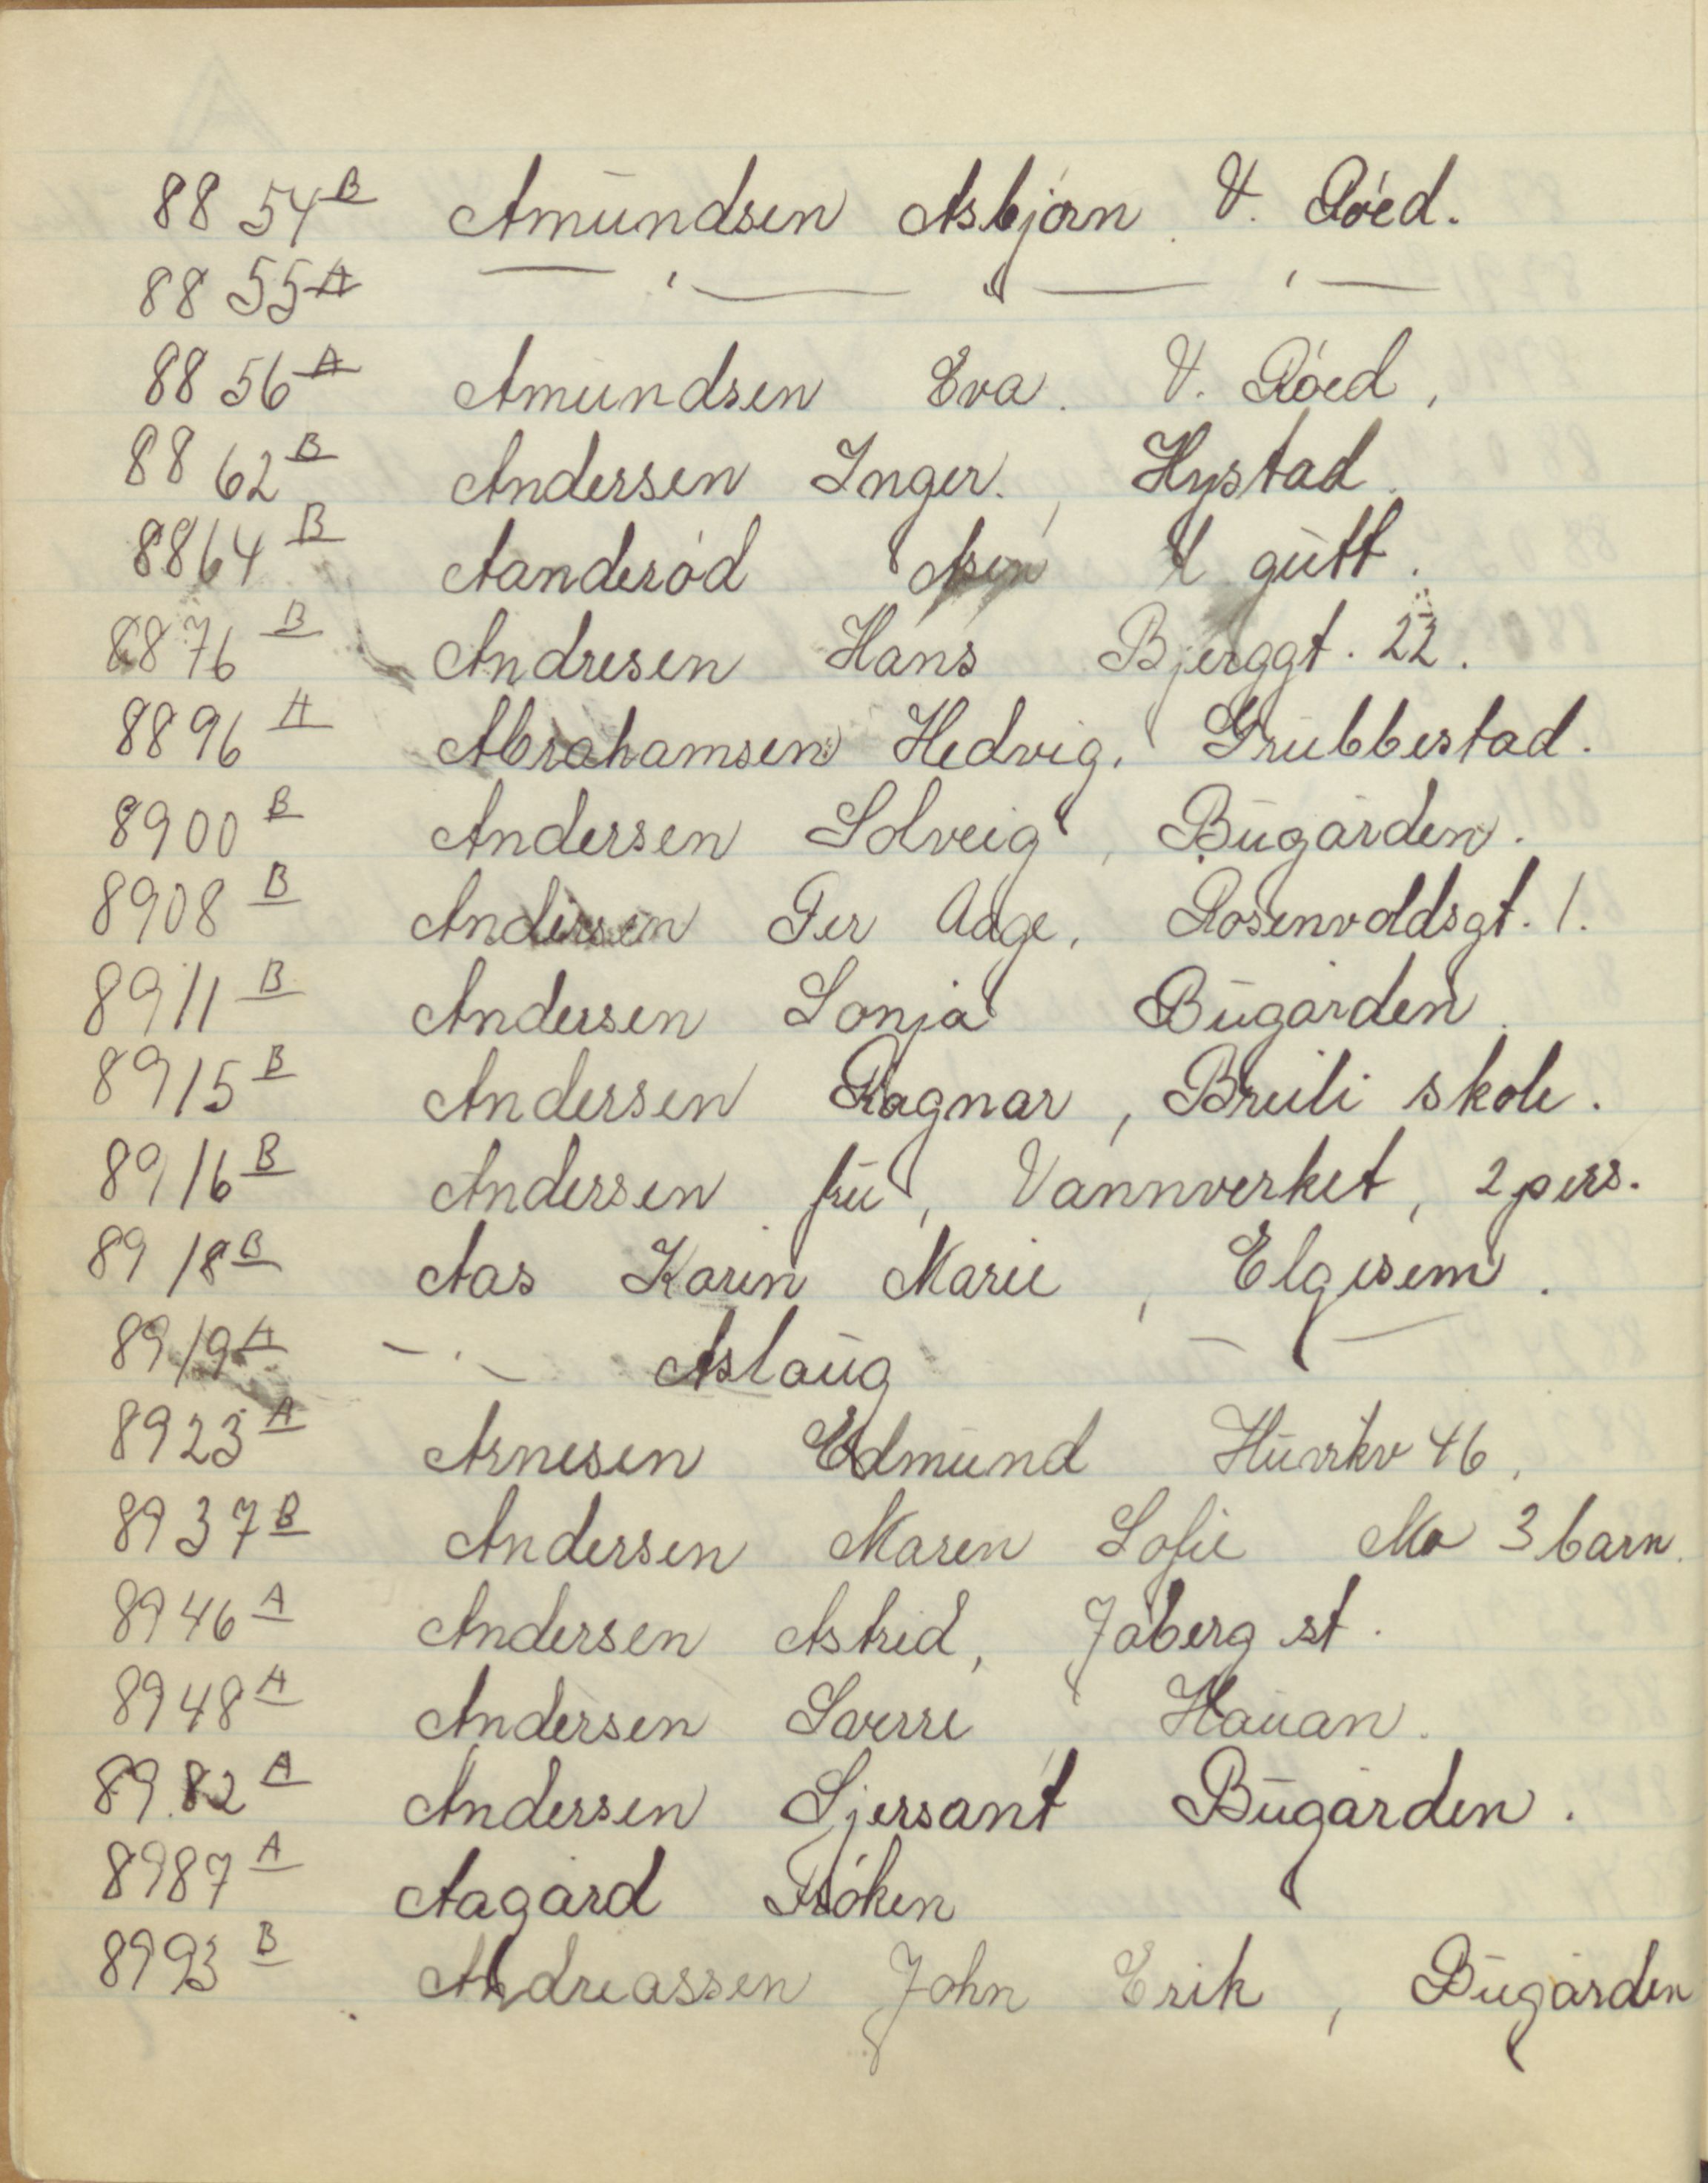 8854 B Amundsen Asbjørn. V. Røed.
8855 A — " — " — " —
8856 A Amundsen Eva. V. Røed,
8862 B Andersen Inger., Hystad.
8864 B Aanderød gutt.
8876 B Andresen Hans Bjerggt. 22.
8896 A Abrahamsen Hedvig, Grubbestad.
8900 B Andersen Solveig, Bugården.
8908 B Andersen Per Aage, Rosenvoldsgt. 1.
8911 B Andersen Sonja Bugården.
8915 B Andersen Ragnar, Breili skole.
8916 B Andersen fru, Vannverket, 2 pers.
8918 B Aas Karin Marie, Elgesem.
8919 A — " — Aslaug — " —
8923 A Arnesen Edmund 46,
8937 B Andersen Maren Sofie Mo 3 barn.
8946 A Andersen Astrid, Jåberg st.
8948 A Andersen Sverre, Hauan.
8982 A Andersen Sjersant Bugården.
8987 A Aagård Frøken
8993 B Andreassen John Erik, Bugården